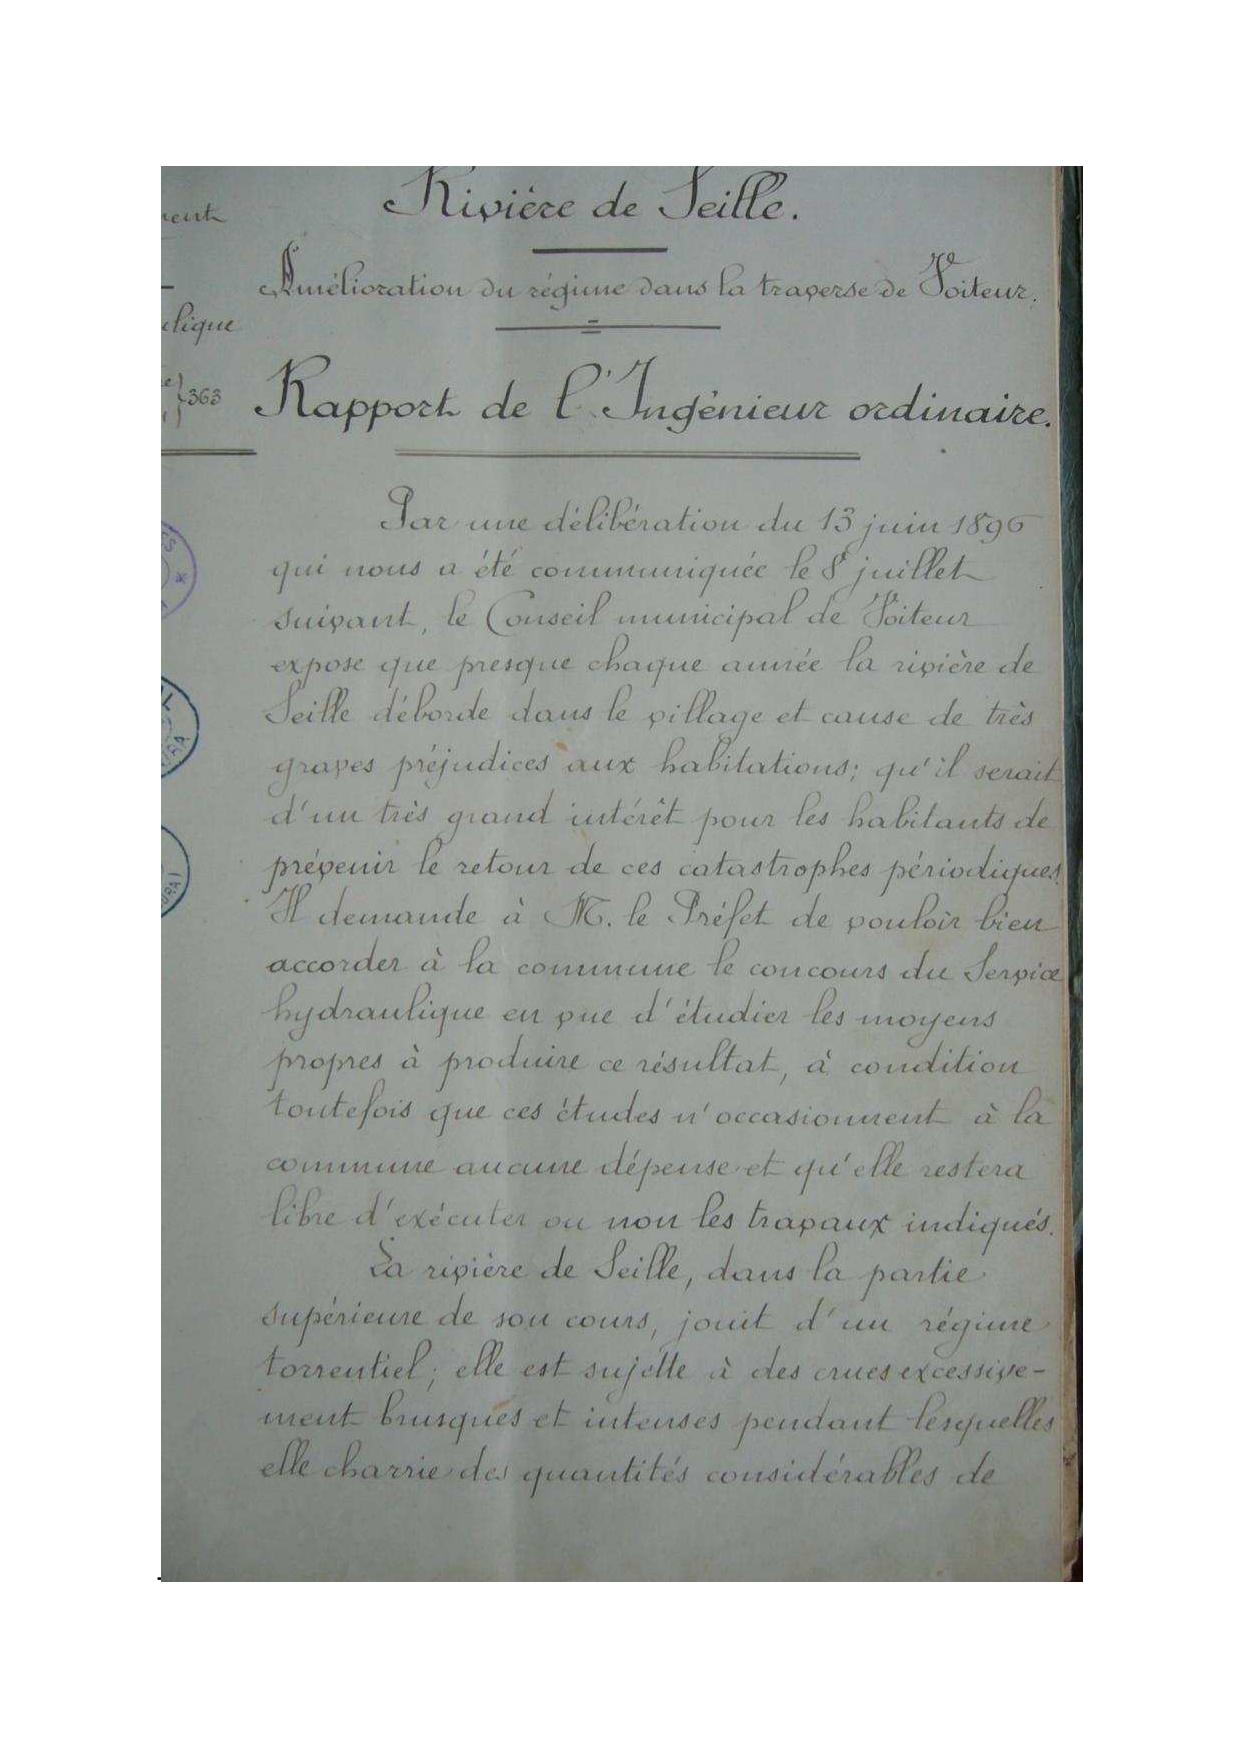 Rivière de Seille.
Amélioration du régime dans la traverse de Voiteur.
Rapport de l'Ingénieur ordinaire.
363
Par une délibération du 13 juin 1896
qui nous a été communiquée le 8 juillet
suivant, le Conseil municipal de Voiteur
expose que presque chaque année la rivière de
Seille déborde dans le village et cause de très
graves préjudices aux habitations; qu'il serait
d'un très grand intérêt pour les habitants de
prévenir le retour de ces catastrophes périodiques.
Il demande à M. le Préfet de vouloir bien
accorder à la commune le concours du Service
hydraulique en vue d'étudier les moyens
propres à produire ce résultat, à condition
toutefois que ces études n'occasionnent à la
commune aucune dépense et qu'elle restera
libre d'exécuter ou non les travaux indiqués.
La rivière de Seille, dans la partie
supérieure de son cours, jouit d'un régime
torrentiel; elle est sujette à des crues excessive-
ment brusques et intenses pendant lesquelles
elle charrie des quantités considérables de